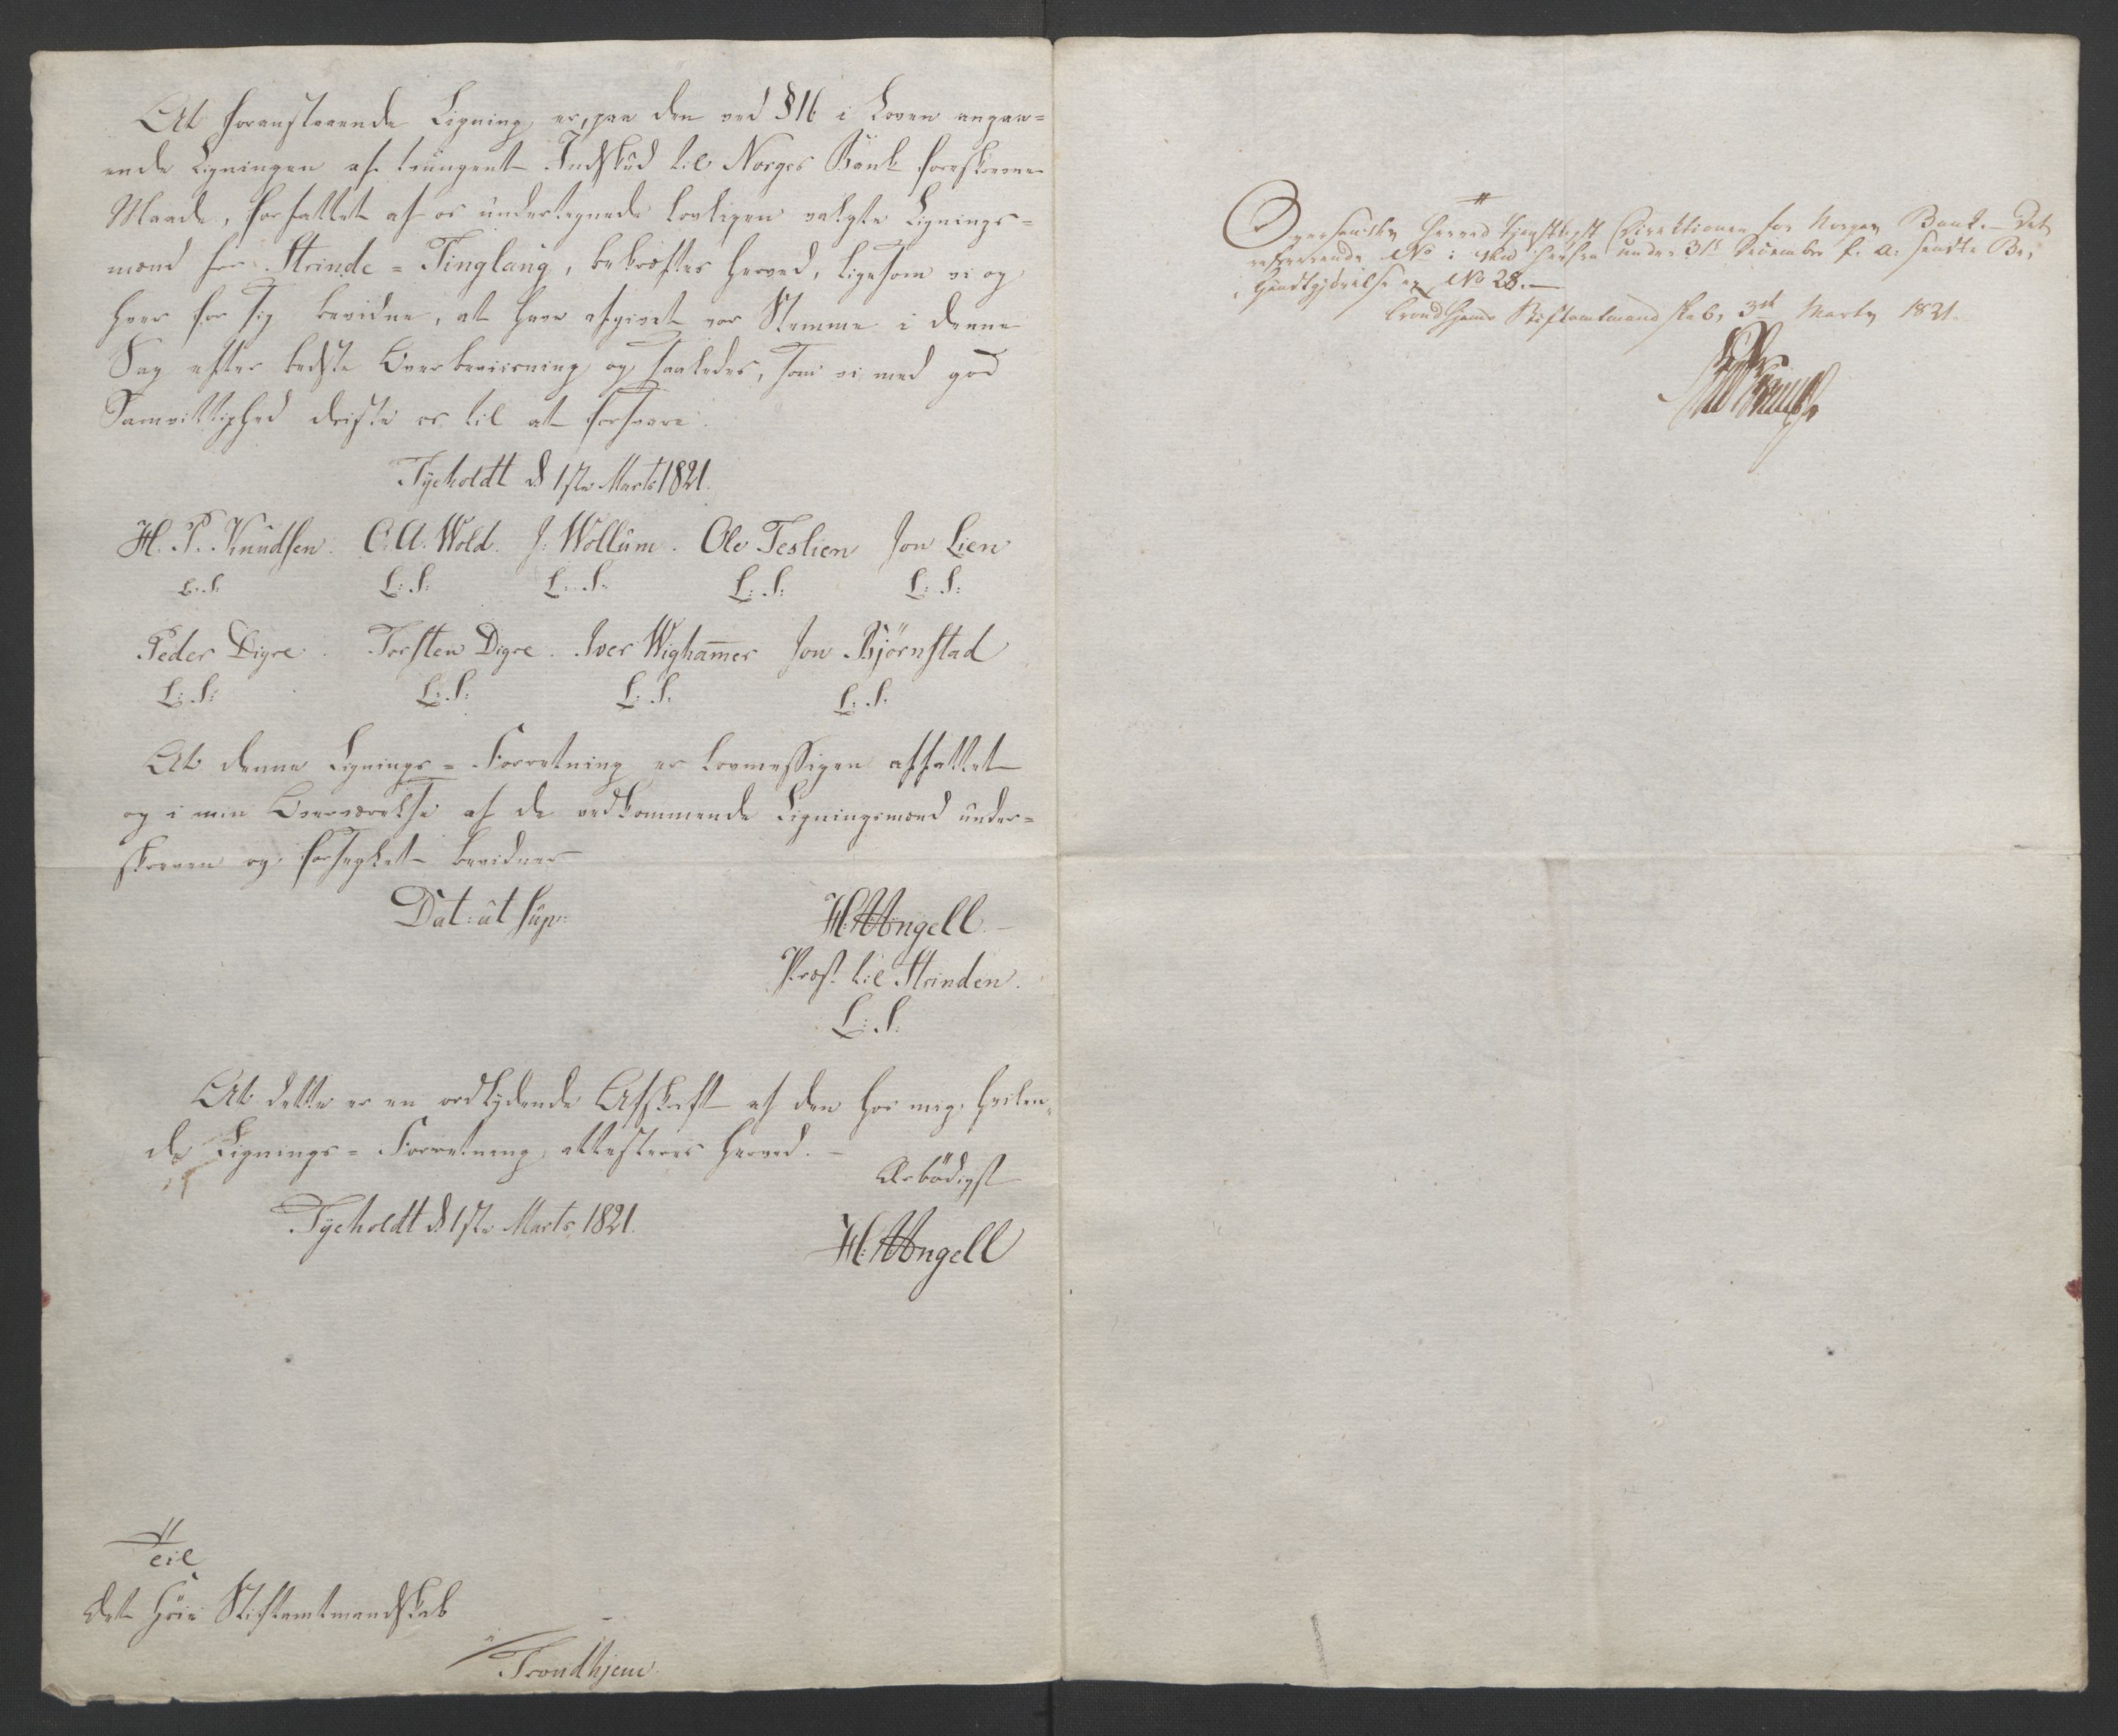 At foranstaaende Ligning er, paa den ved § 16 i Loven angaa=
ende Ligningen af tvungent Indskud til Norges Bank foreskrevne
Maade, forfattet af os undertegnede lovligen valgte Lignings=
mænd for Strinde = Tinglaug, bekræftes herved, ligesom vi og
hver for sig bevidne, at have afgivet vor Stemme i denne
Sag efter bedste Overbeviisning og saaledes, som vi med god
Samvittighed driste os til at forsvare.
Tycholdt d 1ste Marts 1821.
H. P. Knudsen. C. A. Wold. J. Wollum. Ole Teslien Jon Lien
L: S: L: S: L: S: L: S: L: S:
Peder Digre. Torsten Digre. Iver Wighamer Jon Björnstad
L: S: L: S: L: S: L: S:
At denne Lignings = Forretning er lovmessigen affattet
og i min Overværelse af de vedkommende Ligningsmænd under=
skreven og forseglet bevidner
Dat: ut sup:
H: Angell.
Præst til Strinden.
L: S:
At dette er en ordlydende Afskrift af den hos mig hvilen=
de Lignings = Forretning attesteres herved. —
Ærbödigst
Tycholdt d 1ste Marts 1821.
H: Angell
Til
det höie Stiftamtmandskab
i
Trondhjem.
Oversendes herved tjenstligst Directionen for Norges Bank. — Det
refererende No i den herfra under 31te December f. A. sendte Be=
kjendtgjörelse er No 28. —
Trondhjems Stiftamtmandskab, 3die Marts 1821.